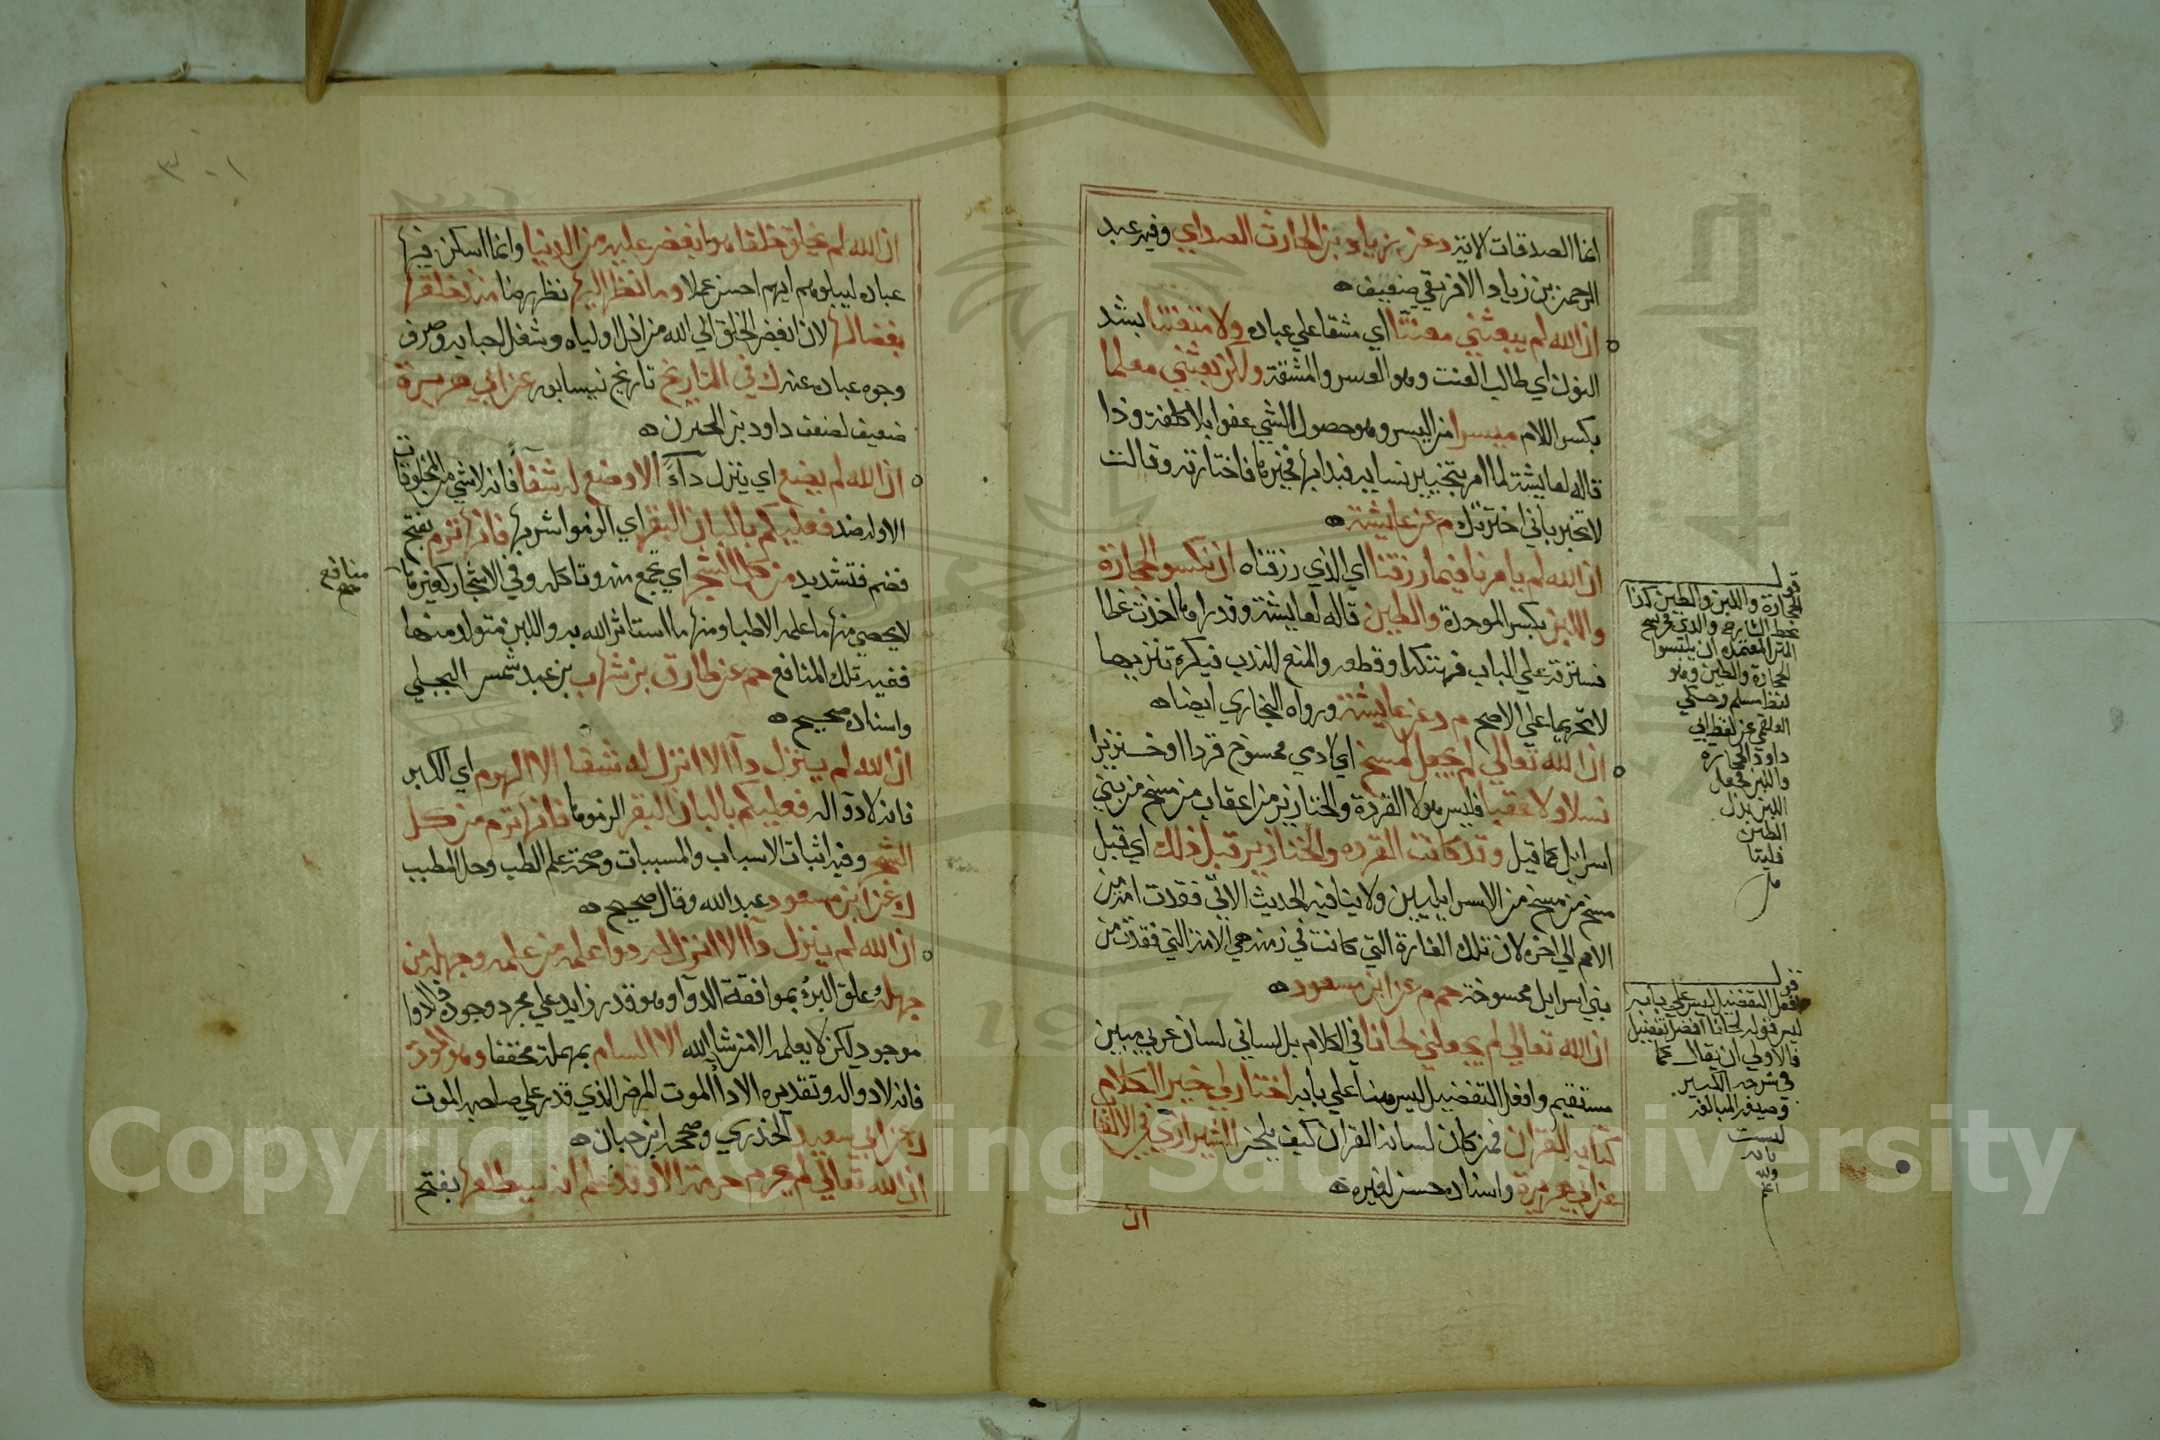 انما الصدقات الاية د عن زياد بن الحارث الصداي وفيه عبد
الرحمن بن زياد الافريقي ضعيف ه
ان الله لم يبعثني معنتا اي مشقا علي عباده ولا متعنتا بشد
النون اي طالب العنت وهو العسر والمشقة ولكن بعثني معلما
بكسر اللام ميسرا من اليسر وهو حصول الشي عفوا بلا كلفة وذا
قاله لعايشة لما امر بتخيير نسايه فبدا بها فخيرها فاختارته وقالت
لا تخبر باني اخترتك م عن عايشة ه
ان الله لم يامرنا فيما رزقنا اي الذي رزقناه ان نكسو الحجارة
واللبن بكسر الموحدة والطين قاله لعايشة وقد راها اخذت غطا
فسترته علي الباب فهتكه او قطعه والمنع للندب فيكره تنزيها
لا تحريما علي الاصح م د عن عايشة ورواه البخاري ايضا ه
ان الله تعالي لم يجعل لمسخ اي لادمي ممسوخ قردا او خنزيرا
نسلا ولا عقبا فليس هولا القردة والخنازير من اعقاب من مسخ من بني
اسرايل كما قيل وقد كانت القرده والخنازير قبل ذلك اي قبل
مسخ من مسخ من الاسراييليين ولا ينافيه الحديث الاتي فقدت امة من
الامم الي اخره لان تلك الفارة التي كانت في زمنه هي الامة التي فقدت من
بني اسرايل ممسوخة حم م عن ابن مسعود ه
ان الله تعالي لم يجعلني لحانا في الكلام بل لساني لسان عربي مبين
مستقيم وافعل التفضيل ليس هنا علي بابه اختار لي خير الكلام
كتابه القران فمن كان لسانه القران كيف يلحن الشيرازي في الالقاب
عن ابي هريرة واسناده حسن لغيره ه
ان
قوله
الحجارة واللبن والطين كذا
بخط الشارح والذي في نسخ
المتن المعتمدة ان نكسوا
الحجارة والطين وهو
لفظ مسلم وحكي
العلقمي عن لفظ ابي
داود الحجارة
واللبن فجعل
اللبن بدل
الطين
قوله
افعل التفضيل ليس علي بابه
ليس قوله لحانا افعل تفضيل
فالاولي ان يقال كما
في شرحه الكبير
وصيغة المبالغة
ليست
بابه
والله
اعلم
١٠٣
ان الله لم يخلق خلقا هو ابغض عليه من الدنيا وانما اسكن فيها
عباده ليبلوهم ايهم احسن عملا وما نظر اليها نظر رضا منذ خلقها
بغضا لها لان ابغض الخلق الي الله من اذل اولياه وشغل احبابه وصرف
وجوه عباده عنه ك في التاريخ تاريخ نيسابور عن ابي هريرة
ضعيف لضعف داود بن المحبر ه
ان الله لم يضع اي ينزل داء الا وضع له شفا فانه لا شي من المخلوقات
الا وله ضد فعليكم بالبان البقر اي الزموا شربها فانها ترم بفتح
فضم فتشديد من كل الشجر اي تجمع منه وتاكله وفي الاشجار كغيرها
منافع
لا يحصي منها ما علمه الاطبا ومنها ما استاثر الله به واللبن متولد منها
ففيه تلك المنافع حم عن طارق بن شهاب بن عبد شمس البجلي
واسناده صحيح ه
ان الله لم ينزل داء الا انزل له شفا الا الهرم اي الكبر
فانه لا دوا له فعليكم بالبان البقر الزموها فانها ترم من كل
الشجر وفيه اثبات الاسباب والمسببات وصحة علم الطب وحل المطبب
ك عن ابن مسعود عبد الله وقال صحيح ه
ان الله لم ينزل داء الا انزل له دوا علمه من علمه وجهله من
جهله علق البرء بموافقة الدوا وهو قدر زايد علي مجرد وجوده فالدوا
موجود لكن لا يعلمه الا من شاء الله الا السام بمهملة مخففا وهو الموت
فانه لا دوا له وتقديره الا داء الموت المرض الذي قدر علي صاحبه الموت
ك عن ابي سعيد الخدري وصححه ابن حبان ه
ان الله تعالي لم يحرم حرمة الا وقد علم انه سيطلعها بفتح
Copyright © King Saud University
1957